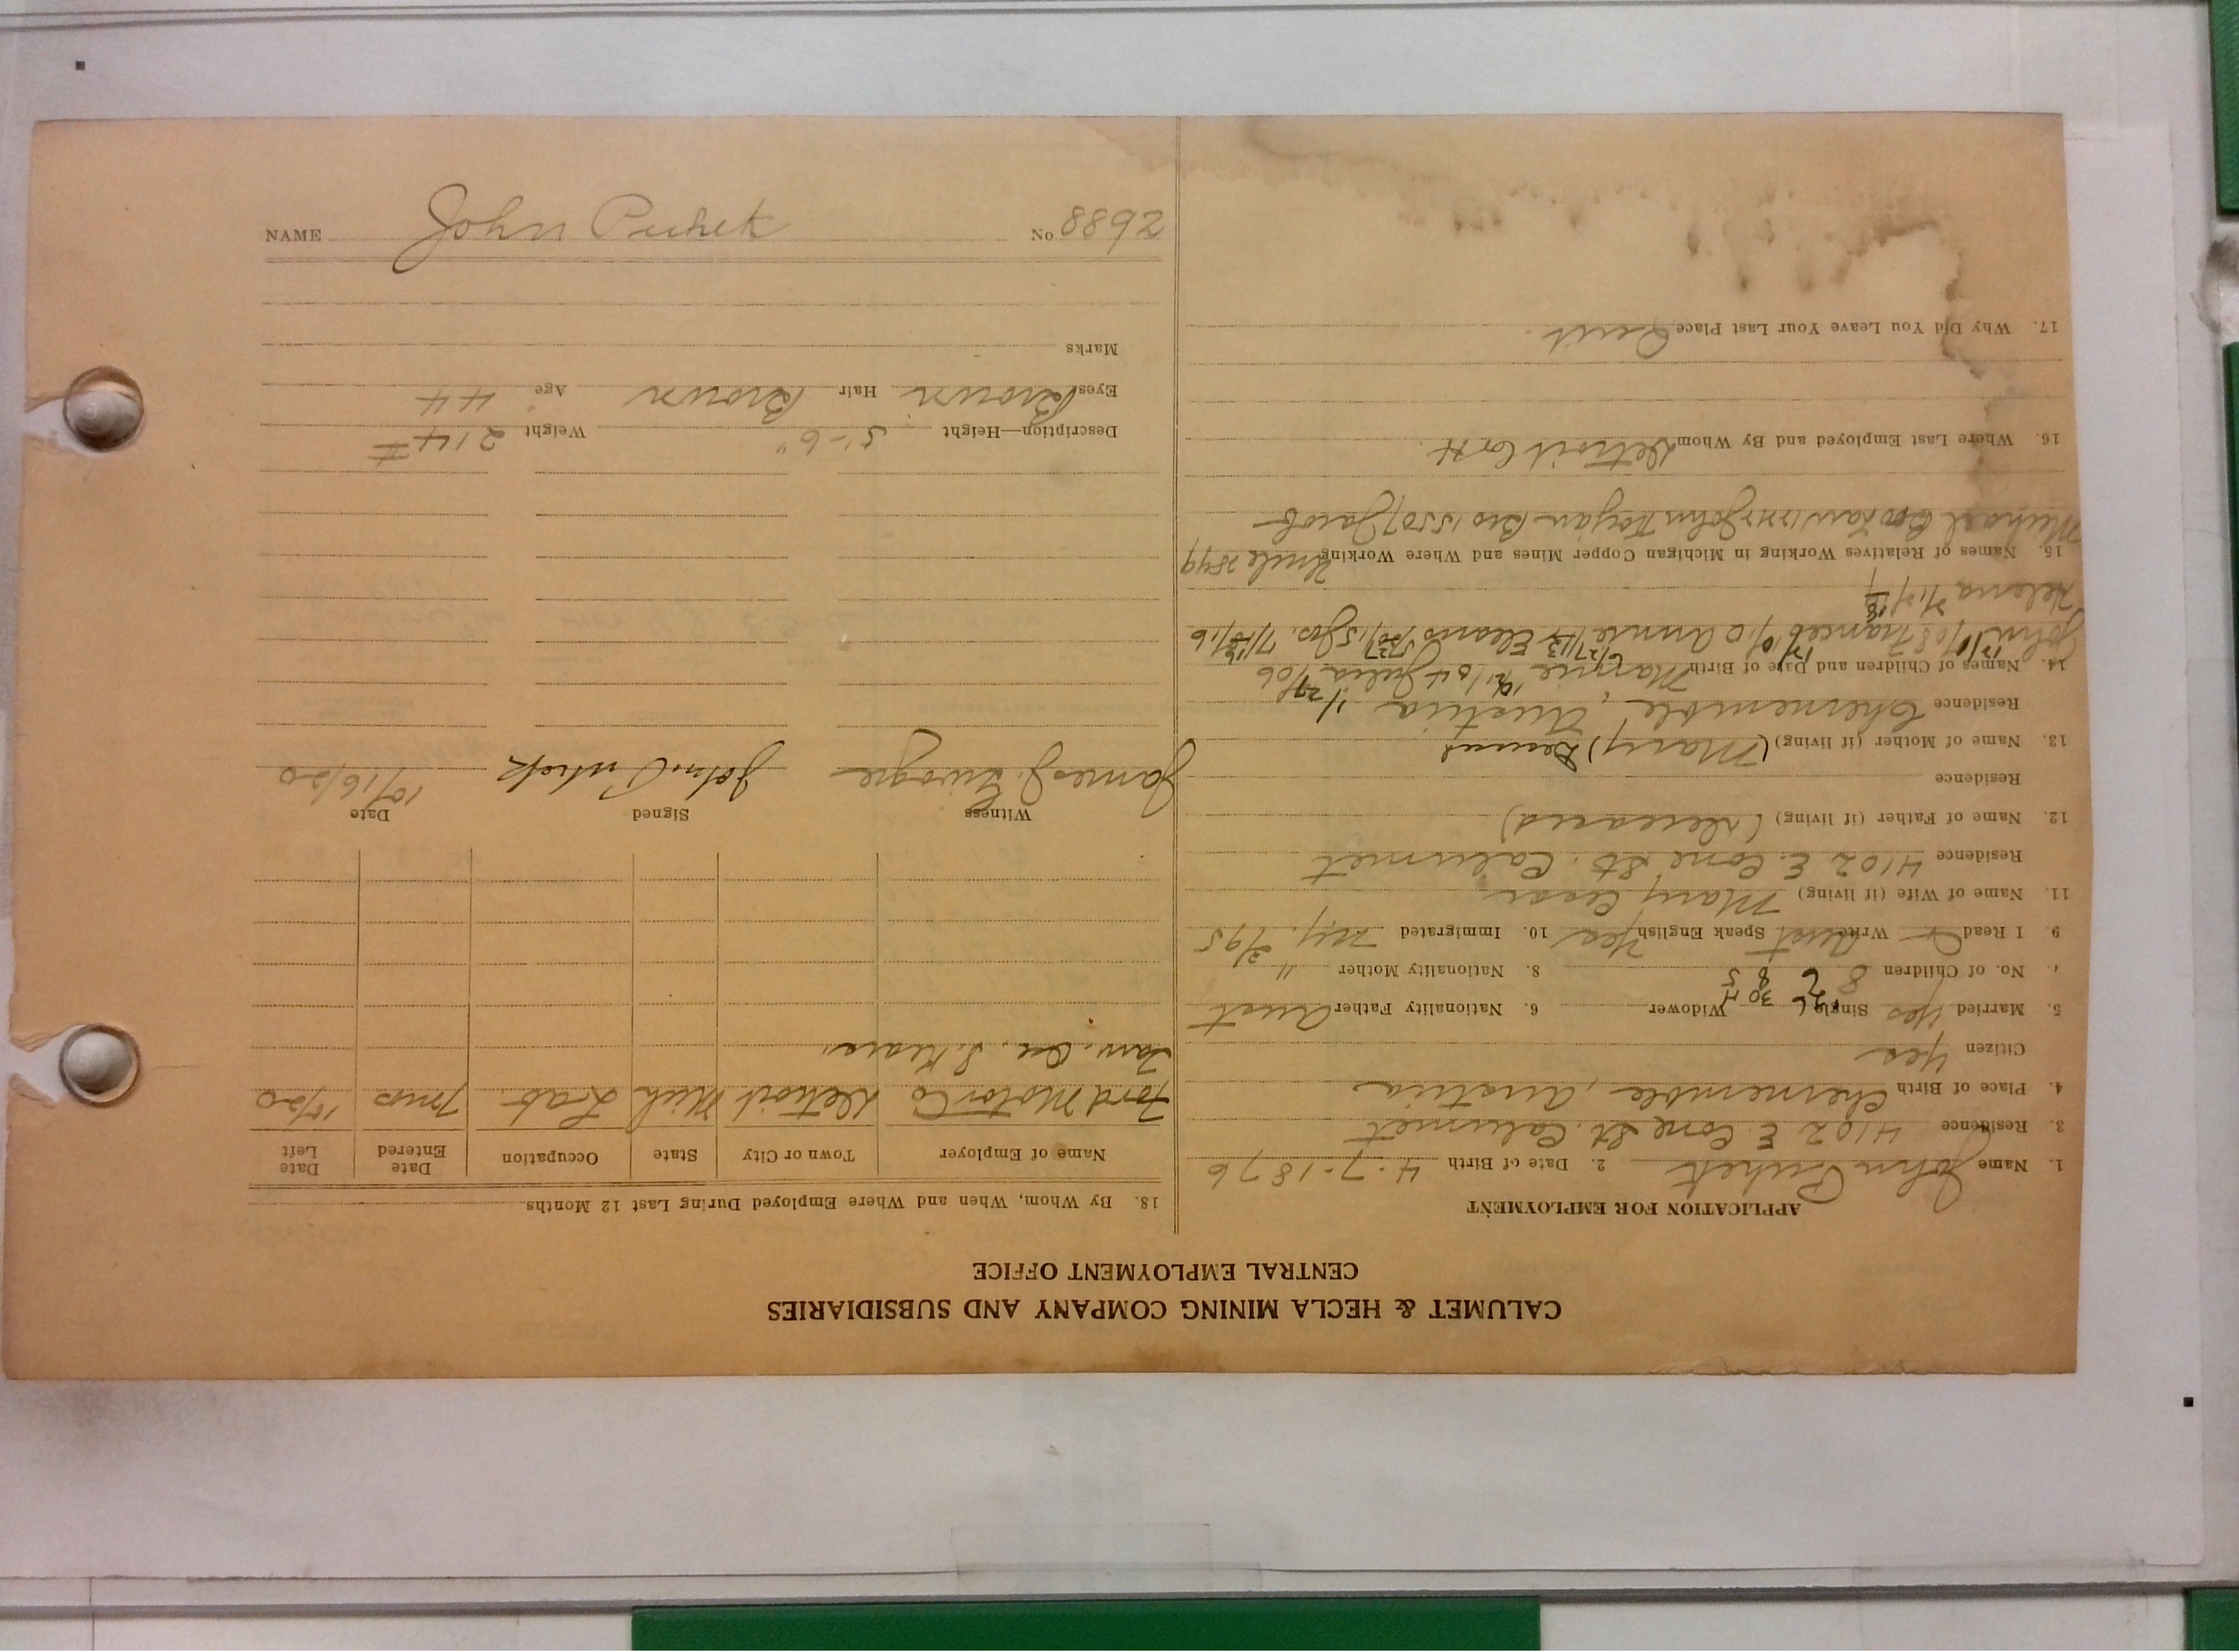 CALUMET & HECLA MINING COMPANY AND SUBSIDIARIES
CENTRAL EMPLOYMENT OFFICE
APPLICATION FOR EMPLOYMENT
1. Name John Puhek 2. Date of Birth 4-7-1876
3. Residence 4102 E. Cone St. Calumet
4. Place of Birth Chernemble, Austria
Citizen Yes
5. Married Yes Single Widower 6. Nationality Father Aust
7. No. of Children 8 8. Nationality Mother "
9. I Read Write Aust Speak English Yes 10. Immigrated N.Y. 3/95
11. Name of Wife (if living) Mary
Residence 4102 E. Cone St. Calumet
12. Name of Father (if living) (Deceased)
Residence
13. Name of Mother (if living) (Mary)
Residence Chernemble, Austria
14. Names of Children and Date of Birth Julia
John Frances Annie Jos.
Helena
15. Names of Relatives Working in Michigan Copper Mines and Where Working Uncle
Michael John Bro Jacob
16. Where Last Employed and By Whom Detroit
17. Why Did You Leave Your Last Place Quit
18. By Whom, When and Where Employed During Last 12 Months
Name of Employer Town or City State Occupation Date Entered Date Left
Ford Motor Co Detroit Mich Lab. 7 mos 10/20
Witness Signed Date
James J. John Puhek 10/16/20
Description—Height 5'-6" Weight 214#
Eyes Brown Hair Brown Age 44
Marks
NAME John Puhek No 8892